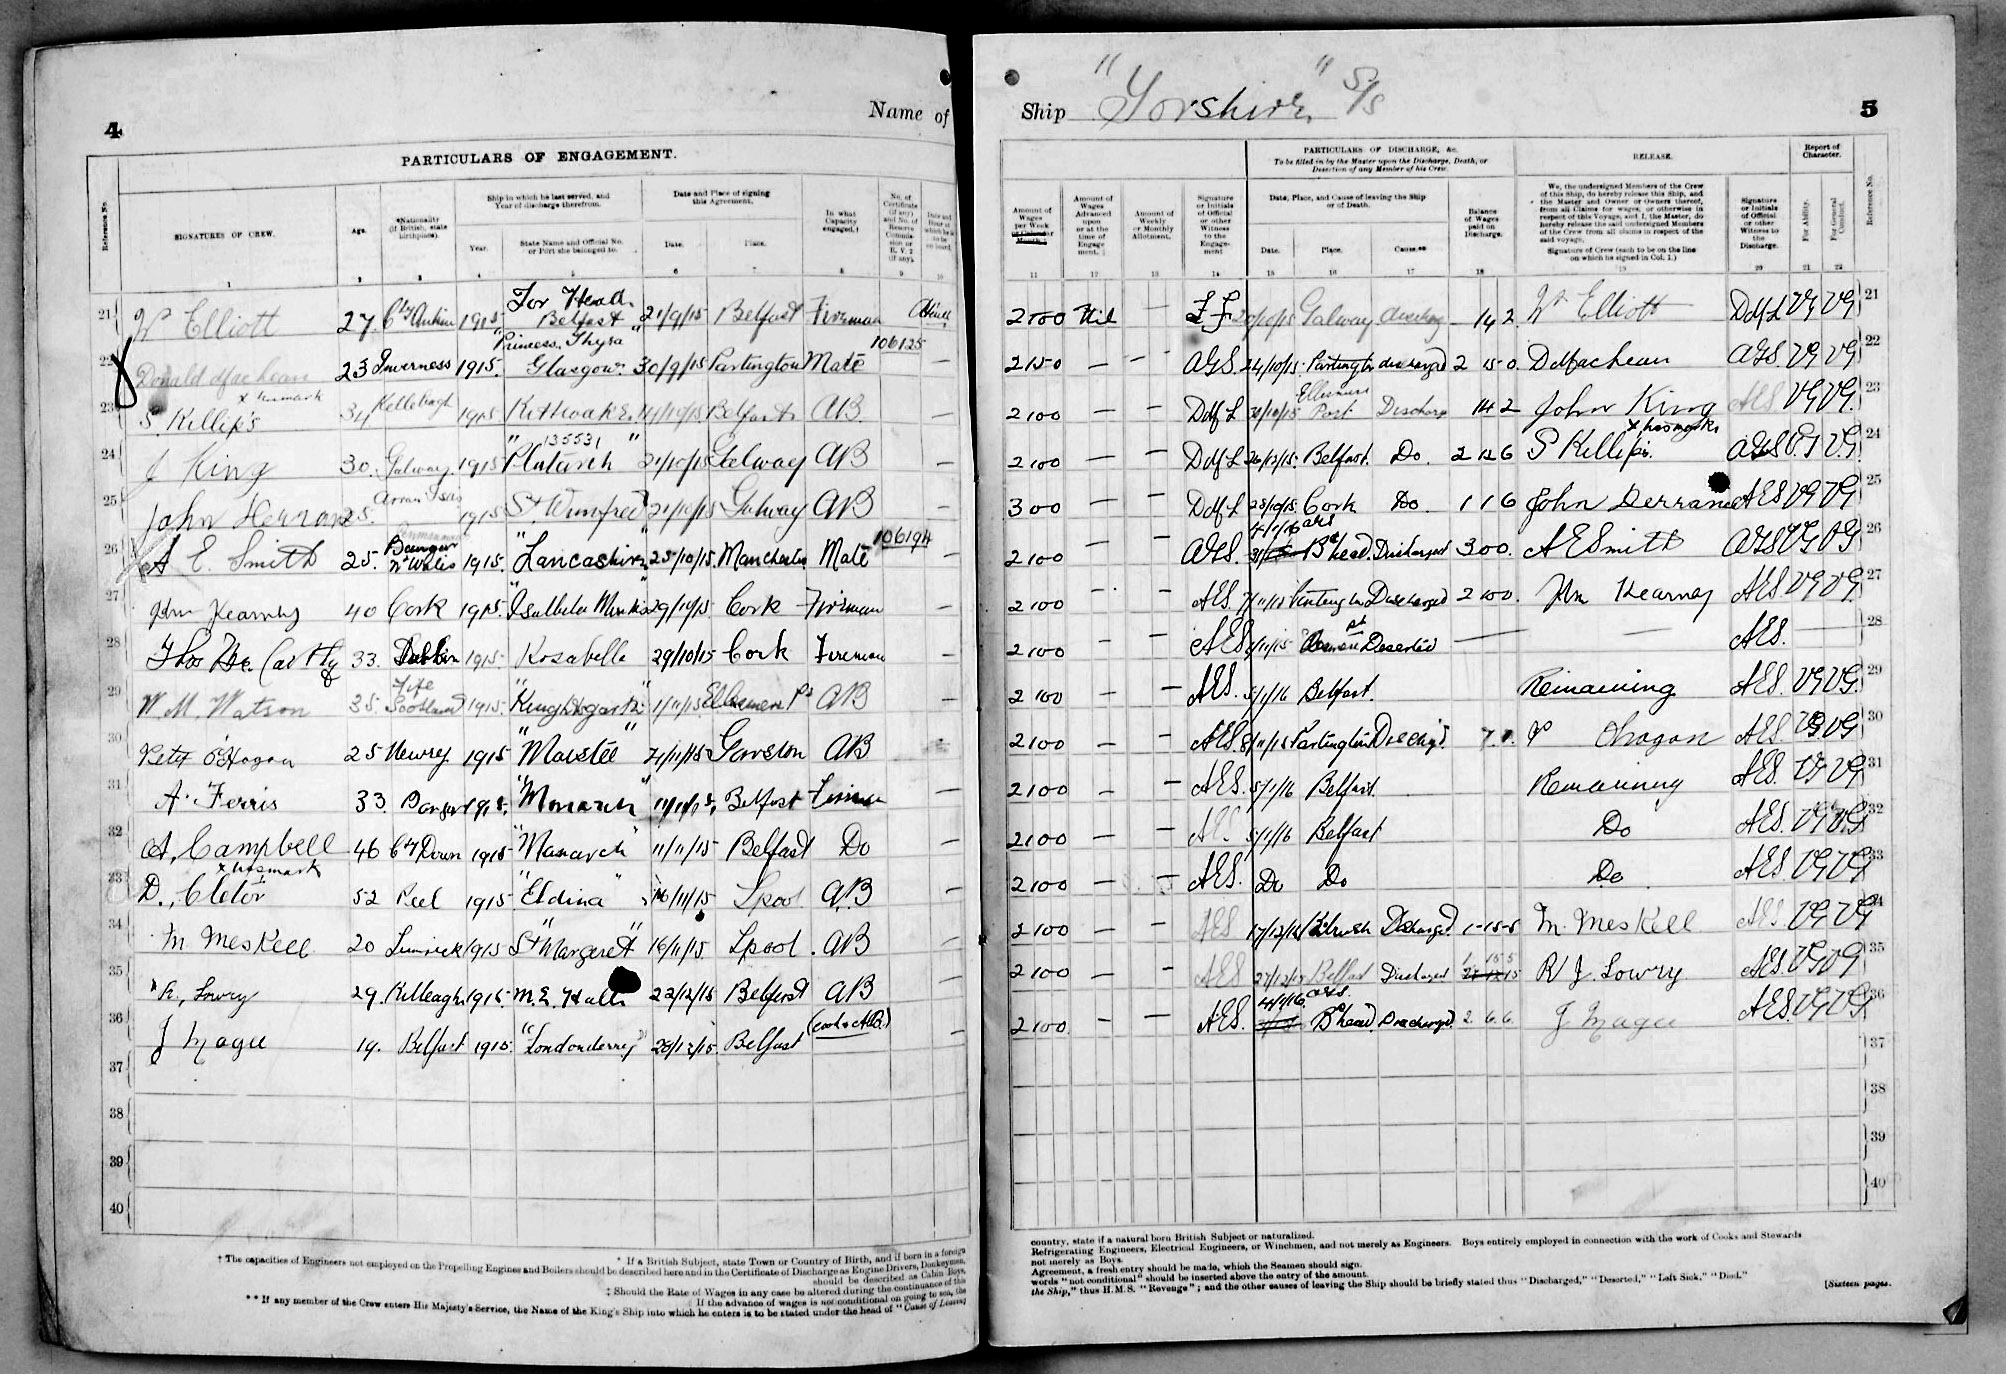 4
Name of
PARTICULARS OF ENGAGEMENT.
Reference No.
SIGNATURES OF CREW.
Age.
*Nationality (if British, state birthplace).
Ship in which he last served, and Year of discharge therefrom.
Year.
State Name and Official No. or Port she belonged to.
Date and Place of signing this Agreement.
Date.
Place.
In what Capacity engaged.†
No. of Certificate (if any) and No. of Reserve Commission or R. V. 2 (if any).
1 2 3 4 5 6 7 8 9 10
21 W Elliott 27 Cty Antrim 1915 Tor Head. Belfast 21/9/15 Belfast Fireman
22 Donald 23 Inverness 1915. "Princess Thyra" Glasgow. 30/9/15 Partington Mate 106125
23 S. Killips x hismark 34 1915 14/10/15 Belfast AB
24 J King 30. Galway 1915 "Plutarch" 135531 21/10/15 Galway AB
25 John 25. Arran Isles 1915 St Winifred 21/10/15 Galway AB
26 A E. Smith 25. Bangor Nth Wales 1915. "Lancashire" 25/10/15. Manchester Mate 106194
27 Jhn Kearney 40 Cork 1915 29/10/15 Cork Fireman
28 Thos Mc. Carthy 33. Dublin 1915 Rosabelle 29/10/15 Cork Fireman
29 W. M. Watson 35. Fife Scotland 1915. 1/11/15 Ellesmere Pt AB
30 Peter O'Hagan 25 Newry 1915 /11/15 Garston AB
31 A. Ferris 33. Bangor 1915. "Monarch" 11/11/15, Belfast Fireman
32 A. Campbell 46 Cty Down 1915 "Monarch" 11/11/15 Belfast Do
33 D. x hismark 52 Peel 1915 "Eldina" 16/11/15 Lpool AB
34 M Meskell 20 Limerick 1915 "St Margaret" 16/11/15. Lpool. AB
35 R. Lowry 29. Killeagh 1915. M. E. 22/12/15 Belfast AB
36 J Magee 19. Belfast 1915. "Londonderry" 28/12/15. Belfast (cook & AB.)
37
38
39
40
* If a British Subject, state Town or Country of Birth, and if born in a foreign
† The capacities of Engineers not employed on the Propelling Engines and Boilers should be described here and in the Certificate of Discharge as Engine Drivers, Donkeymen,
should be described as Cabin Boys,
‡ Should the Rate of Wages in any case be altered during the continuance of this
If the advance of wages is not conditional on going to sea, the
** If any member of the Crew enters His Majesty's Service, the Name of the King's Ship into which he enters is to be stated under the head of "Cause of Leaving
Ship "Yorshire" S/S
5
PARTICULARS OF DISCHARGE, &c.
To be filled in by the Master upon the Discharge, Death, or Desertion of any Member of his Crew.
RELEASE.
Report of Character.
Amount of Wages per Week or Calendar Month.‡
Amount of Wages Advanced upon or at the time of Engagement.‡
Amount of Weekly or Monthly Allotment.
Signature or Initials of Official or other Witness to the Engagement
Date, Place, and Cause of leaving the Ship or of Death.
Date.
Place.
Cause.**
Balance of Wages paid on Discharge.
We, the undersigned Members of the Crew of this Ship, do hereby release this Ship, and the Master and Owner or Owners thereof, from all Claims for wages, or otherwise in respect of this Voyage, and I, the Master, do hereby release the said undersigned Members of the Crew from all claims in respect of the said voyage.
Signature of Crew (each to be on the line on which he signed in Col. 1.)
Signature or Initials of Official or other Witness to the Discharge.
For Ability.
For General Conduct.
Reference No.
11 12 13 14 15 16 17 18 19 20 21 22
2 10 0 Nil — 20/10/15 Galway discharg 14 2 W. Elliott VG VG 21
2 15 0 — — AES. 24/10/15. Partington discharged 2 15 0. VG VG 22
2 10 0 — — 30/10/15 Ellesmere Port Discharg 14 2 John King x hismark AES VG VG. 23
2 10 0 — — 26/12/15. Belfast. Do. 2 12 6 S Killips. AES VG VG. 24
3 0 0 — — 28/10/15. Cork Do. 1 1 6 John AES VG VG 25
2 10 0 — — AES. 4/1/16 AES B'head. Discharged 3 0 0. A E Smith AES VG VG 26
2 10 0 — — AES. 7/11/15 Partington Discharged 2 10 0. Jhn Kearney AES VG VG. 27
2 10 0 — — AES /11/15 Deserted — — AES. — 28
2 10 0 — — AES. 5/1/16 Belfast. Remaining AES. VG VG. 29
2 10 0 — — AES. 8/11/15 Partington Dischgd. Ohagan AES VG VG 30
2 10 0 — — AES. 5/1/16 Belfast. Remaining AES. VG VG 31
2 10 0 — — AES 5/1/16 Belfast Do AES. VG VG 32
2 10 0 — AES. Do Do Do AES. VG VG 33
2 10 0 — — AES 17/12/15 Discharged 1-15-5 M. Meskell AES VG VG 34
2 10 0 — — AES 27/12/15 Belfast Discharged 1 15 5 R J. Lowry AES. VG VG 35
2 10 0 — — AES. 4/1/16 AES. B'head Discharged 2. 6. 6. J Magee AES VG VG 36
37
38
39
40
country, state if a natural born British Subject or naturalized.
Refrigerating Engineers, Electrical Engineers, or Winchmen, and not merely as Engineers. Boys entirely employed in connection with the work of Cooks and Stewards
not merely as Boys.
Agreement, a fresh entry should be made, which the Seamen should sign.
words "not conditional" should be inserted above the entry of the amount.
the Ship," thus H.M.S. "Revenge"; and the other causes of leaving the Ship should be briefly stated thus "Discharged," "Deserted," "Left Sick," "Died."
[Sixteen pages.